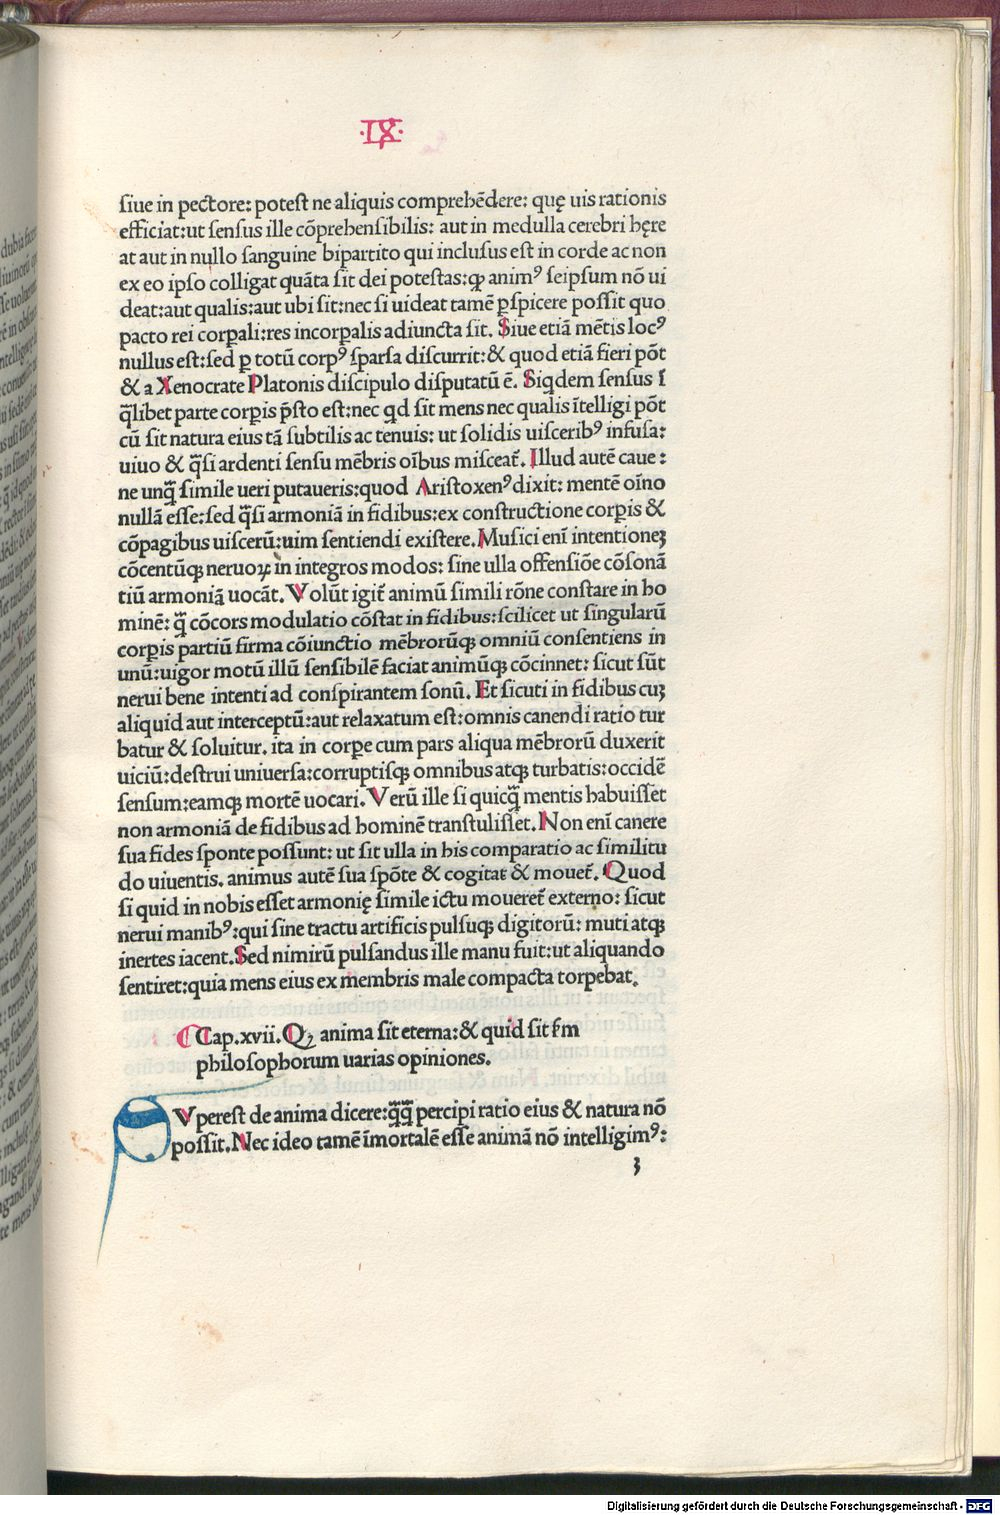 ·IX·
siue in pectore: potest ne aliquis comprehēdere: quę uis rationis
efficiat:ut sensus ille cōprehensibilis: aut in medulla cerebri hęre
at aut in nullo sanguine bipartito qui inclusus est in corde ac non
ex eo ipso colligat quāta sit dei potestas:ꝙ animꝰ seipsum nō ui
deat:aut qualis:aut ubi sit:nec si uideat tamē ꝑspicere possit quo
pacto rei corꝑali:res incorꝑalis adiuncta sit. Siue etiā mētis locꝰ
nullus est:sed ꝑ totū corpꝰ sparsa discurrit:& quod etiā fieri pōt
& a Xenocrate Platonis discipulo disputatū ē. Siqdem sensus ī
q̄libet parte corꝑis p̄sto est:nec qd sit mens nec qualis ītelligi pōt
cū sit natura eius tā subtilis ac tenuis: ut solidis uisceribꝰ infusa:
uiuo & q̄si ardenti sensu mēbris oībus misceat̄. Illud autē caue:
ne unq̄ simile ueri putaueris:quod Aristoxenꝰ dixit: mentē oīno
nullā esse:sed q̄si armoniā in fidibus:ex constructione corꝑis &
cōpagibus uiscerū:uim sentiendi existere. Musici enī intentioneꝫ
cōcentūqꝫ neruoꝝ in integros modos: sine ulla offensiōe cōsonā
tiū armoniā uocāt. Volūt igit̄ animū simili rōne constare in ho
minē: q̄ cōcors modulatio cōstat in fidibus:scilicet ut singularū
corꝑis partiū firma cōiunctio mēbrorūqꝫ omniū consentiens in
unū:uigor motū illū sensibilē faciat animūqꝫ cōcinnet: sicut sūt
nerui bene intenti ad conspirantem sonū. Et sicuti in fidibus cuꝫ
aliquid aut interceptū:aut relaxatum est:omnis canendi ratio tur
batur & soluitur. ita in corꝑe cum pars aliqua mēbrorū duxerit
uiciū:destrui uniuersa:corruptisqꝫ omnibus atqꝫ turbatis:occidē
sensum:eamqꝫ mortē uocari. Verū ille si quicq̄ mentis habuisset
non armoniā de fidibus ad hominē transtulisset. Non enī canere
sua fides sponte possunt: ut sit ulla in his comparatio ac similitu
do uiuentis. animus autē sua spōte & cogitat & mouet̄. Quod
si quid in nobis esset armonię simile ictu moueret̄ externo: sicut
nerui manibꝰ:qui sine tractu artificis pulsuqꝫ digitorū: muti atqꝫ
inertes iacent. Sed nimirū pulsandus ille manu fuit:ut aliquando
sentiret:quia mens eius ex membris male compacta torpebat.
Cap.xvii. Qꝫ anima sit eterna:& quid sit s̄m
philosophorum uarias opiniones.
Vperest de anima dicere:q̄q̄ percipi ratio eius & natura nō
possit. Nec ideo tamē īmortalē esse animā nō intelligimꝰ:
3
Digitalisierung gefördert durch die Deutsche Forschungsgemeinschaft - DFG